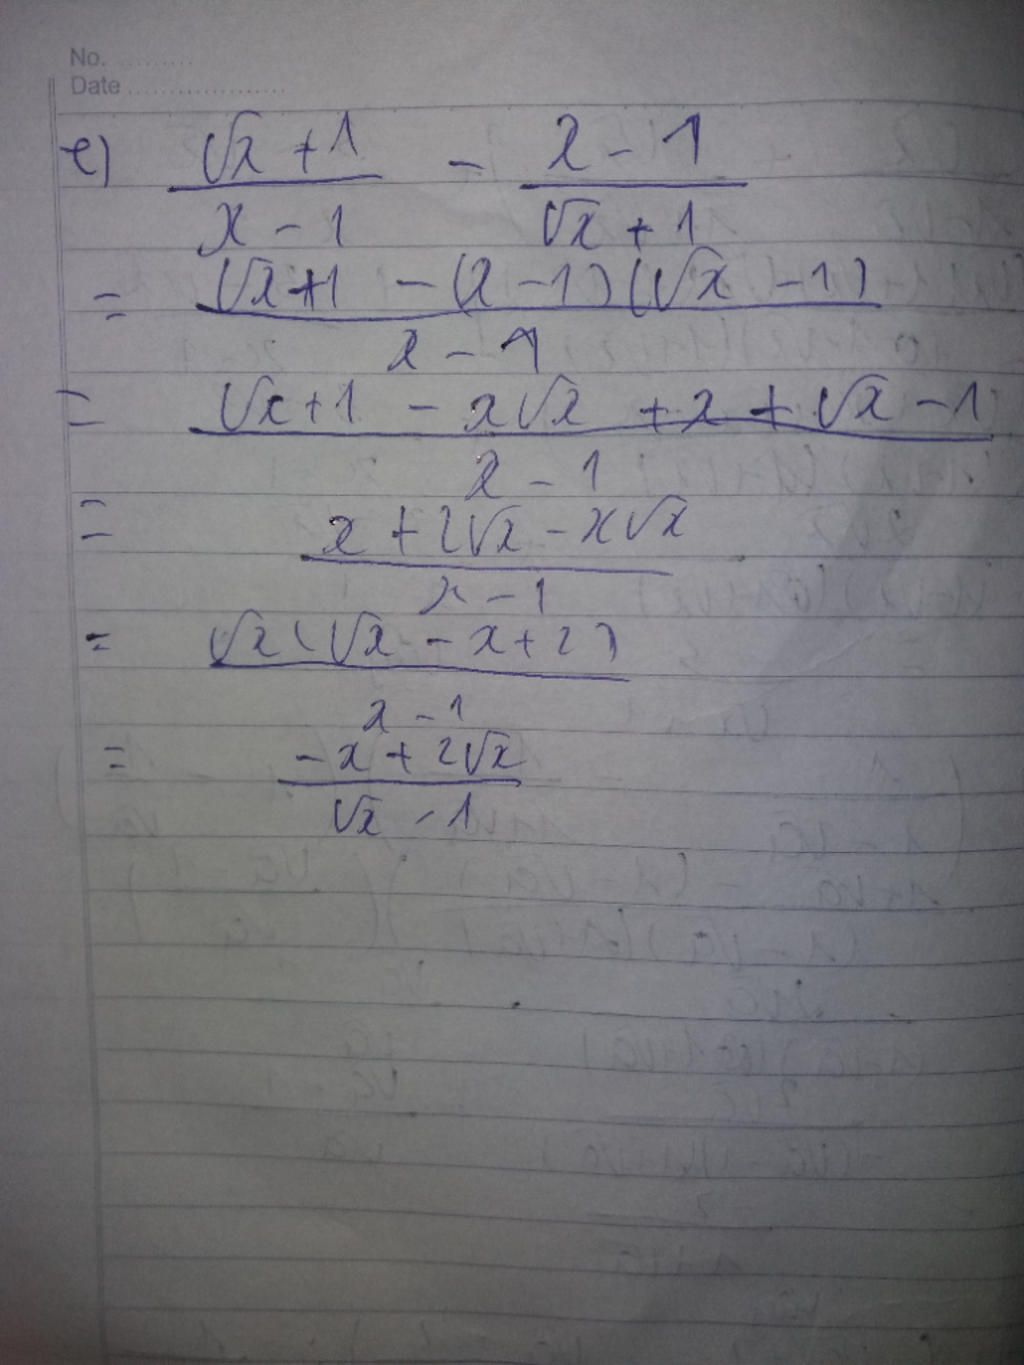 No. ..........
Date ....................
e) (√x + 1)/(x - 1) - (x - 1)/(√x + 1)
= (√x + 1 - (x - 1)(√x - 1))/(x - 1)
= (√x + 1 - x√x + x + √x - 1)/(x - 1)
= (x + 2√x - x√x)/(x - 1)
= (√x(√x - x + 2))/(x - 1)
= (-x + 2√x)/(√x - 1)